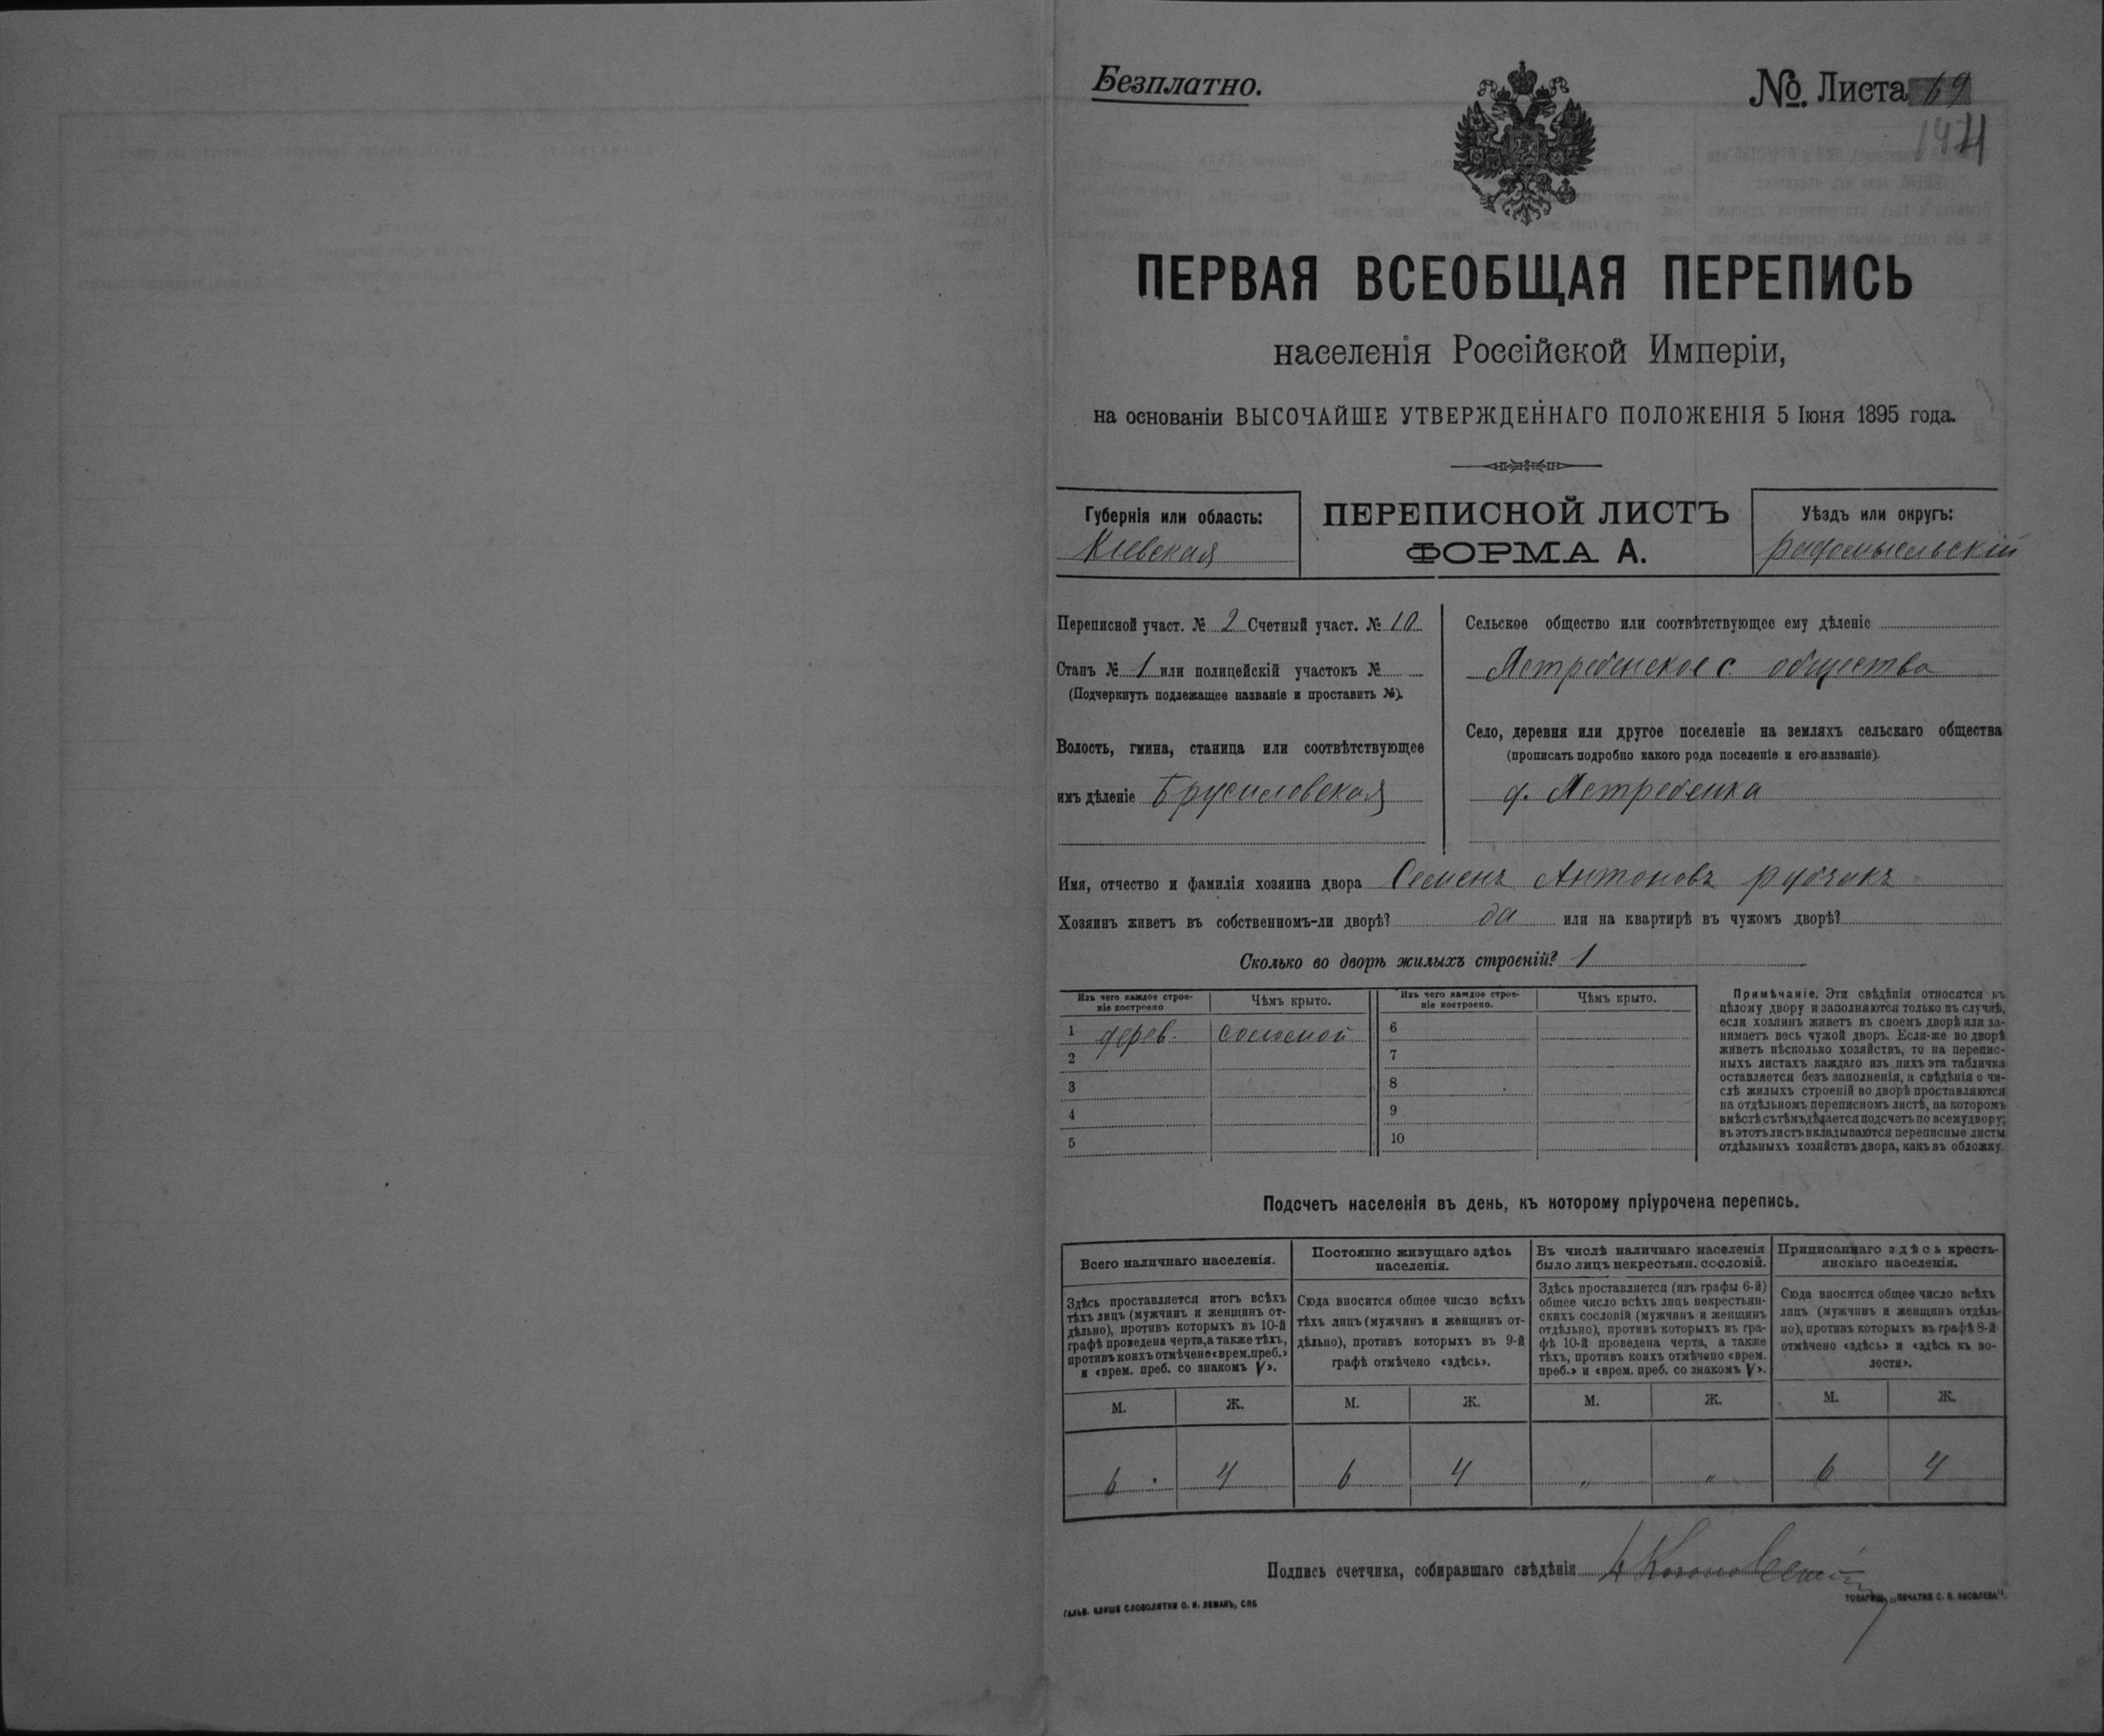 Безплатно.
№. Листа 69
Первая Всеобщая Перепись
населенія Россійской Имперіи,
на основаніи ВЫСОЧАЙШЕ УТВЕРЖДЕННАГО ПОЛОЖЕНІЯ 5 Іюня 1895 года.
Губернія или область:
Кіевская
ПЕРЕПИСНОЙ ЛИСТЪ
ФОРМА А.
Уѣздъ или округъ:
радомысльскій
Переписной участ. № 2 Счетный участ. № 10
Станъ № 1 или полицейскій участокъ №
(Подчеркнуть подлежащее названіе и проставить №).
Волость, гмина, станица или соотвѣтствующее
имъ дѣленіе Брусиловская
Сельское общество или соотвѣтствующее ему дѣленіе
Ястребенское с. общества
Село, деревня или другое поселеніе на земляхъ сельскаго общества
(прописать подробно какого рода поселеніе и его названіе).
д. Ястребенка
Имя, отчество и фамилія хозяина двора Семенъ Антоновъ рубчакъ
Хозяинъ живетъ въ собственномъ-ли дворѣ? да или на квартирѣ въ чужомъ дворѣ?
Сколько во дворѣ жилыхъ строеній? 1
Изъ чего каждое строе-
ніе построено
Чѣмъ крыто.
Изъ чего каждое строе-
ніе построено.
Чѣмъ крыто.
1 дерев. соломой
2
3
4
5
6
7
8
9
10
Примѣчаніе. Эти свѣдѣнія относятся къ
цѣлому двору и заполняются только въ случаѣ,
если хозяинъ живетъ въ своемъ дворѣ или за-
нимаетъ весь чужой дворъ. Если-же во дворѣ
живетъ нѣсколько хозяйствъ, то на перепис-
ныхъ листахъ каждаго изъ нихъ эта табличка
оставляется безъ заполненія, а свѣдѣнія о чи-
слѣ жилыхъ строеній во дворѣ проставляются
на отдѣльномъ переписномъ листѣ, на которомъ
вмѣстѣ съ тѣмъ дѣлается подсчетъ по всему двору;
въ этотъ листъ вкладываются переписные листы
отдѣльныхъ хозяйствъ двора, какъ въ обложку.
Подсчетъ населенія въ день, къ которому пріурочена перепись.
Всего наличнаго населенія.
Здѣсь проставляется итогъ всѣхъ
тѣхъ лицъ (мужчинъ и женщинъ от-
дѣльно), противъ которыхъ въ 10-й
графѣ проведена черта, а также тѣхъ,
противъ коихъ отмѣчено «врем. преб.»
и «врем. преб. со знакомъ V».
Постоянно живущаго здѣсь
населенія.
Сюда вносится общее число всѣхъ
тѣхъ лицъ (мужчинъ и женщинъ от-
дѣльно), противъ которыхъ въ 9-й
графѣ отмѣчено «здѣсь».
Въ числѣ наличнаго населенія
было лицъ некрестьян. сословій.
Здѣсь проставляется (изъ графы 6-й)
общее число всѣхъ лицъ некрестьян-
скихъ сословій (мужчинъ и женщинъ
отдѣльно), противъ которыхъ въ гра-
фѣ 10-й проведена черта, а также
тѣхъ, противъ коихъ отмѣчено «врем.
преб.» и «врем. преб. со знакомъ V».
Приписаннаго здѣсь кресть-
янскаго населенія.
Сюда вносится общее число всѣхъ
лицъ (мужчинъ и женщинъ отдѣль-
но), противъ которыхъ въ графѣ 8-й
отмѣчено «здѣсь» и «здѣсь къ во-
лости».
М. Ж. М. Ж. М. Ж. М. Ж.
6 4 6 4 „ „ 6 4
Подпись счетчика, собиравшаго свѣдѣнія
ГАЛЬВ. КЛИШЕ СЛОВОЛИТНИ О. И. ЛЕМАНЪ, СПБ
ТОВАРИЩ. „ПЕЧАТНЯ С. П. ЯКОВЛЕВА".